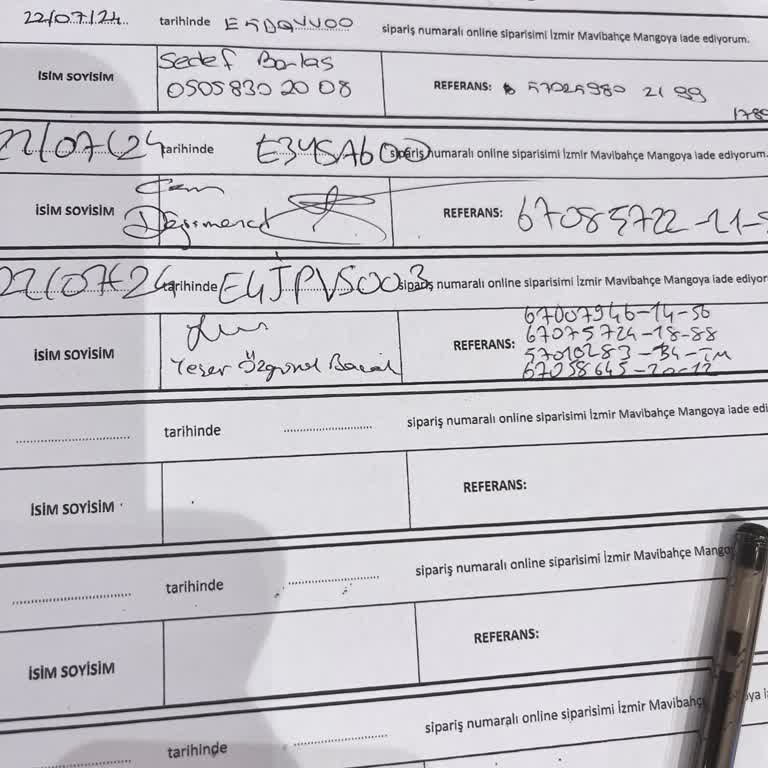 22/07/24 tarihinde sipariş numaralı online siparisimi İzmir Mavibahçe Mangoya iade ediyorum.
İSİM SOYİSİM Sedef Barlas REFERANS: 57025980 21 99
0505 830 20 08
22/07/24 tarihinde E34SA600 sipariş numaralı online siparisimi İzmir Mavibahçe Mangoya iade ediyorum.
İSİM SOYİSİM Cem REFERANS: 67085722-11-
Değirmenci
22/07/24 tarihinde E4JPVS003 sipariş numaralı online siparisimi İzmir Mavibahçe Mangoya iade ediyor
67007946-14-56
İSİM SOYİSİM REFERANS: 67075724-18-88
57010283-34-
67058645-20-12
tarihinde sipariş numaralı online siparisimi İzmir Mavibahçe Mangoya iade edi
İSİM SOYİSİM REFERANS:
tarihinde sipariş numaralı online siparisimi İzmir Mavibahçe Mango
İSİM SOYİSİM REFERANS:
tarihinde sipariş numaralı online siparisimi İzmir Mavibahç